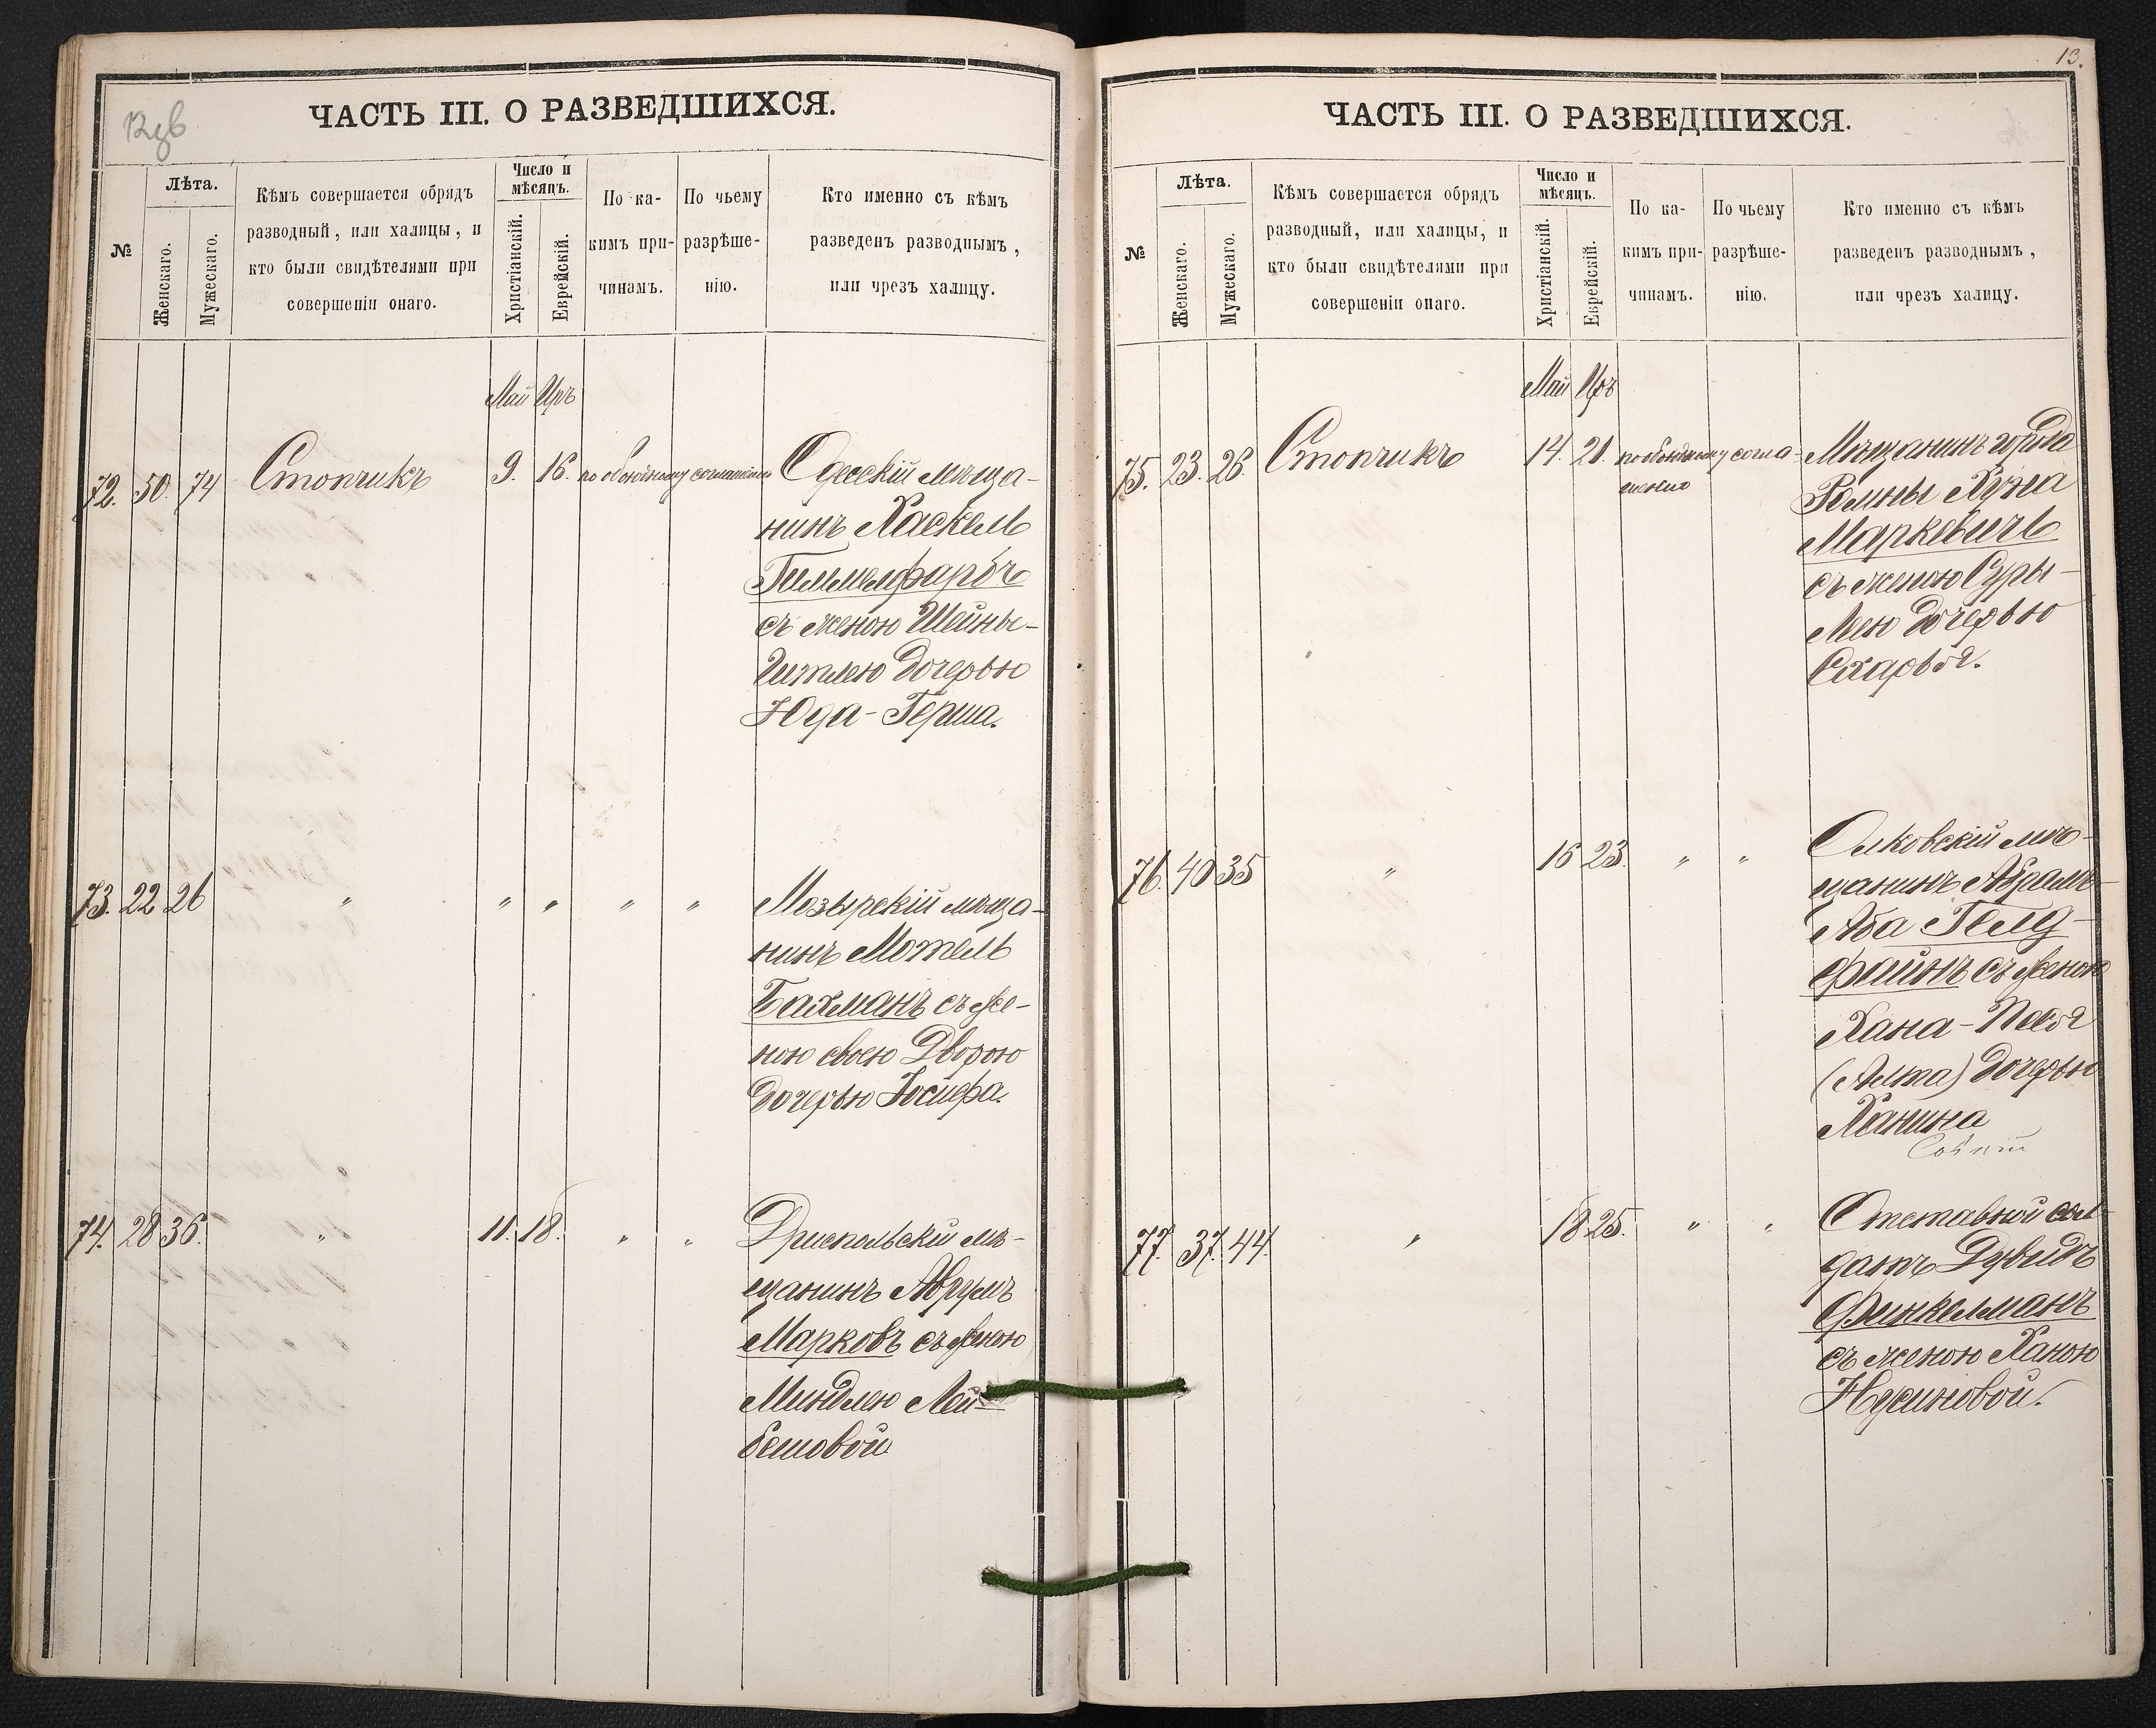 12об
ЧАСТЬ III. О РАЗВЕДШИХСЯ.
№
Лѣта.
Женскаго.
Мужескаго.
Кѣмъ совершается обрядъ
разводный, или халицы, и
кто были свидѣтелями при
совершеніи онаго.
Число и
мѣсяцъ.
Христіанскій.
Еврейскій.
По ка-
кимъ при-
чинамъ.
По чьему
разрѣше-
нію.
Кто именно съ кѣмъ
разведенъ разводнымъ,
или чрезъ халицу.
Май Иръ
72. 50. 74 Стопчикъ 9. 16. по обоюдному соглашенію Одесскій мѣща-
нинъ Хаскель
Гимельфарбъ
съ женою Шейны-
Гитлею дочерью
Юда-Герша.
73. 22 26 " " " " " Мозырскій мѣща-
нинъ Мотель
Бахманъ съ же-
ною своею Дворою
дочерью Іосифа.
74. 28 36. " 11. 18. " " мѣ-
щанинъ Аврумъ
Марковъ съ женою
Миндлею Лей-
бешовой
13.
ЧАСТЬ III. О РАЗВЕДШИХСЯ.
№
Лѣта.
Женскаго.
Мужескаго.
Кѣмъ совершается обрядъ
разводный, или халицы, и
кто были свидѣтелями при
совершеніи онаго.
Число и
мѣсяцъ.
Христіанскій.
Еврейскій.
По ка-
кимъ при-
чинамъ.
По чьему
разрѣше-
нію.
Кто именно съ кѣмъ
разведенъ разводнымъ,
или чрезъ халицу.
Май Иръ
75. 23. 26. Стопчикъ 14. 21. по обоюдному согла-
шенію
Мѣщанинъ города
Ромны Хуна
Маркевичъ
съ женою Суры-
Леею дочерью
Сахарья.
76. 40 35 " 16 23. " " Олковскій мѣ-
щанинъ Абрамъ-
Аба Гелд-
файнъ съ женою
Хана-Песя
(Алта) дочерью
Ханина
77. 37. 44. " 18 25. " " Отставной сол-
датъ Дувидъ
Финкельманъ
съ женою Ханою
Нусиновой.